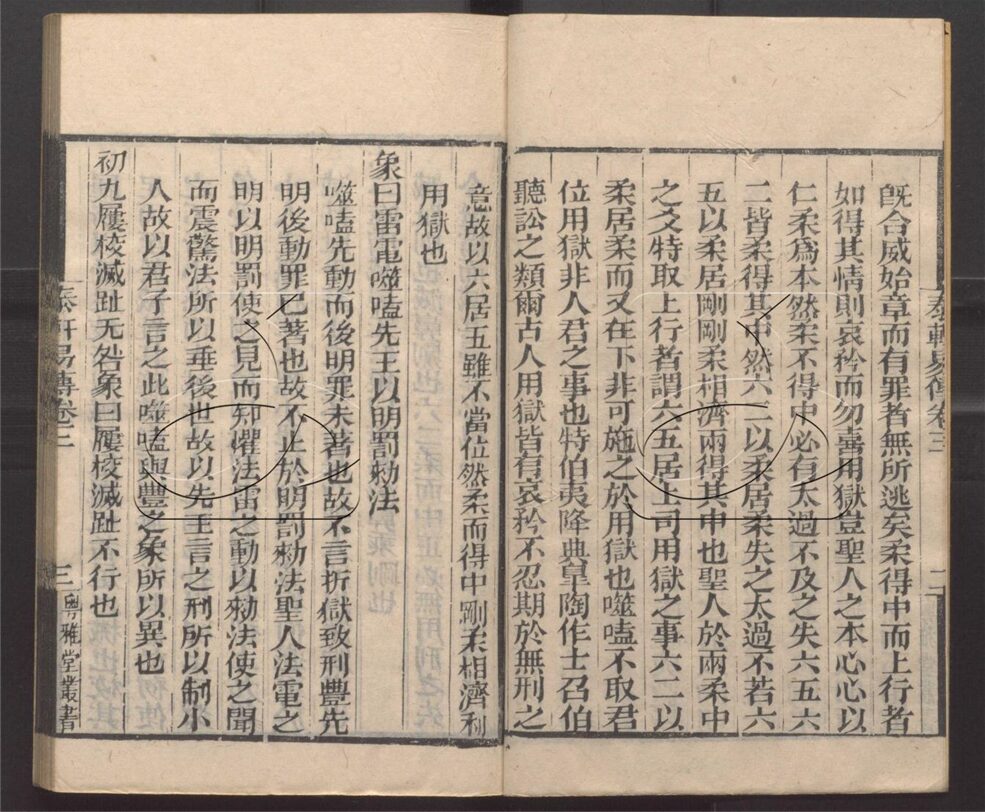 旣合威始章而有罪者無所逃矣柔得中而上行者
如得其情則哀矜而勿喜用獄豈聖人之本心心以
仁柔爲本然柔不得中必有太過不及之失六五六
二皆柔得其中然六二以柔居柔失之太過不若六
五以柔居剛剛柔相濟兩得其中也聖人於兩柔中
之爻特取上行者謂六五居上司用獄之事六二以
柔居柔而又在下非可施之於用獄也噬嗑不取君
位用獄非人君之事也特伯夷降典臯陶作士召伯
聽訟之類爾古人用獄皆有哀矜不忍期於無刑之
泰軒易傳卷三
二
意故以六居五雖不當位然柔而得中剛柔相濟利
用獄也
象曰雷電噬嗑先王以明罰勑法
噬嗑先動而後明罪未著也故不言折獄致刑豐先
明後動罪已著也故不止於明罰勑法聖人法電之
明以明罰使之見而知懼法雷之動以勑法使之聞
而震驚法所以垂後世故以先王言之刑所以制小
人故以君子言之此噬嗑與豐之象所以異也
初九屨校滅趾无咎象曰屨校滅趾不行也
泰軒易傳卷三
三
粵雅堂叢書